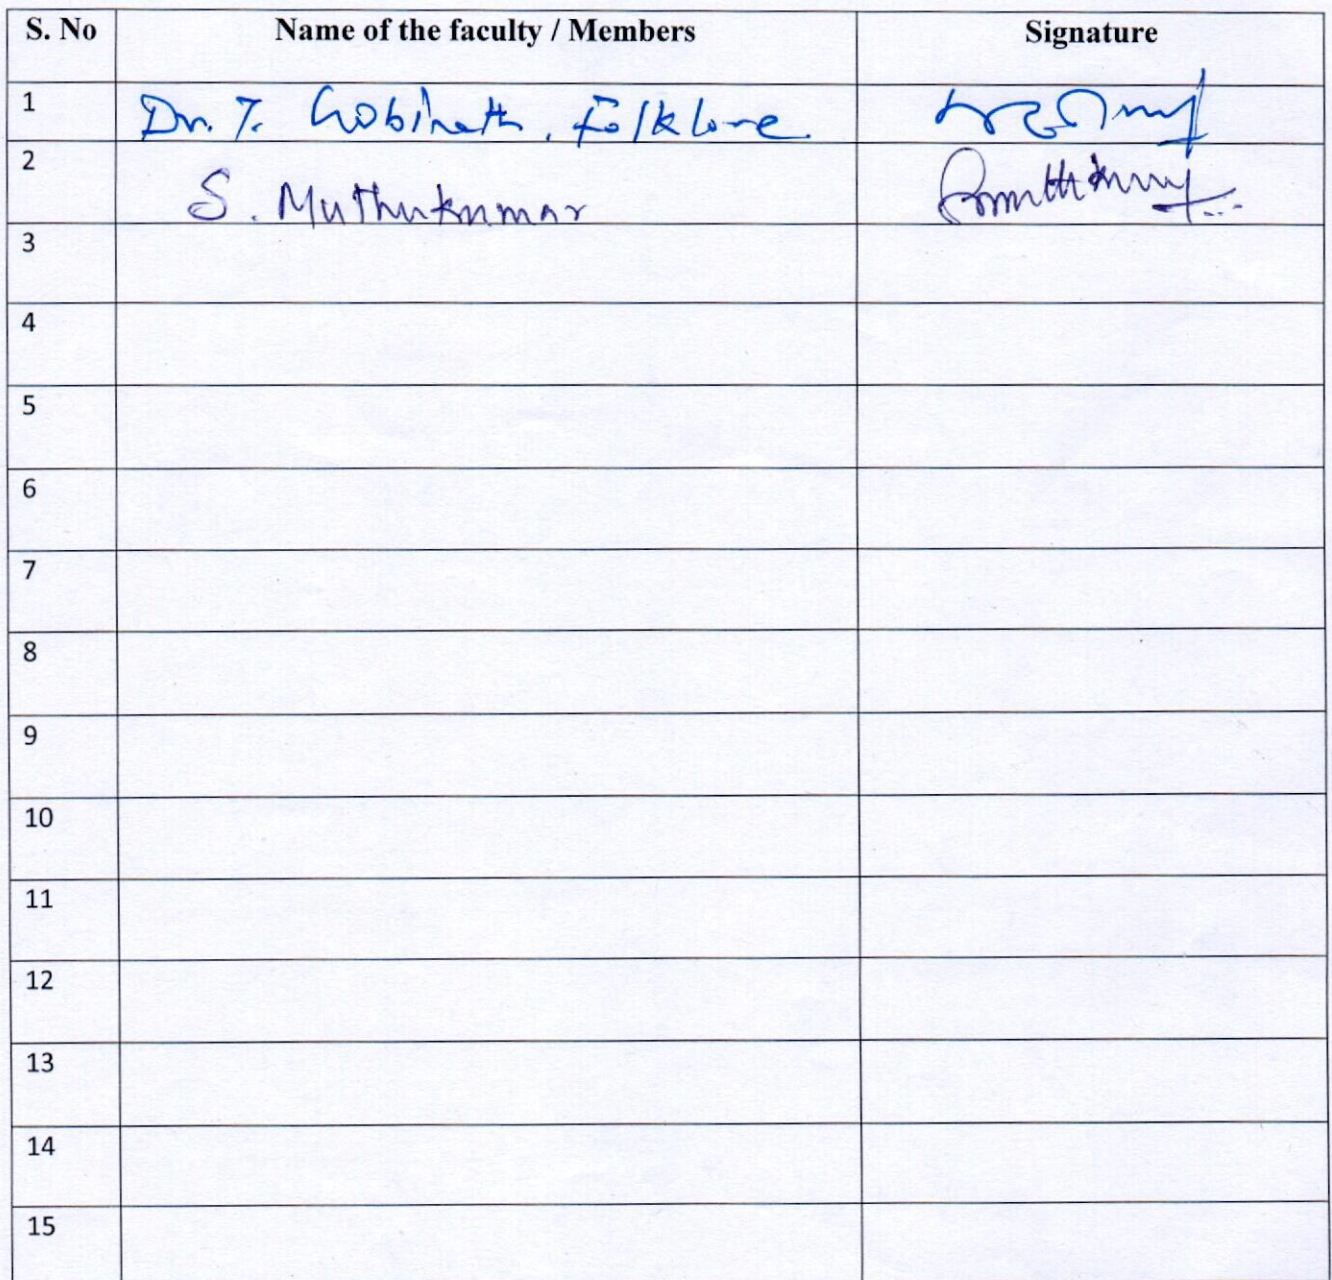 S. No Name of the faculty / Members Signature
1 Dr. T. Gobinath. Folklore.
2 S. Muthukumar
3
4
5
6
7
8
9
10
11
12
13
14
15